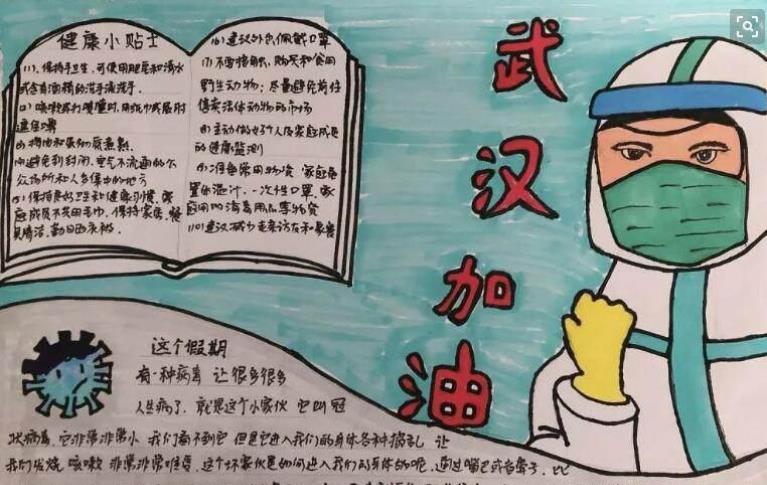 健康小贴士
(1)、保持手卫生，可使用肥皂和清水
或含有酒精的洗手液洗手.
(2)咳嗽或打喷嚏时，用纸巾或屈肘
遮住口鼻
(3)将肉和蛋彻底煮熟.
(4)避免到封闭、空气不流通的公
众场所和人多集中的地方
(5)保持良好卫生和健康习惯，家
庭成员不共用毛巾，保持家居、餐
具清洁，勤日西衣被.
(6)建议外出佩戴口罩
(7)不要接触、购买和食用
野生动物；尽量避免前往
售卖活体动物的市场
(8)主动做好个人及家庭成员
的健康监测
(9)准备常用物资 家庭备
置体温计、一次性口罩、家
庭用的消毒用品等物资
(10)建议减少走亲访友和聚餐
武
汉
加
油
这个假期
有一种病毒 让很多很多
人生病了，就是这个小家伙 它叫冠
状病毒，它非常非常小 我们看不到它 但是它进入我们的身体各种捣乱 让
我们发烧 咳嗽 非常非常难受，这个坏家伙是如何进入我们的身体的呢，通过嘴巴或者鼻子，比